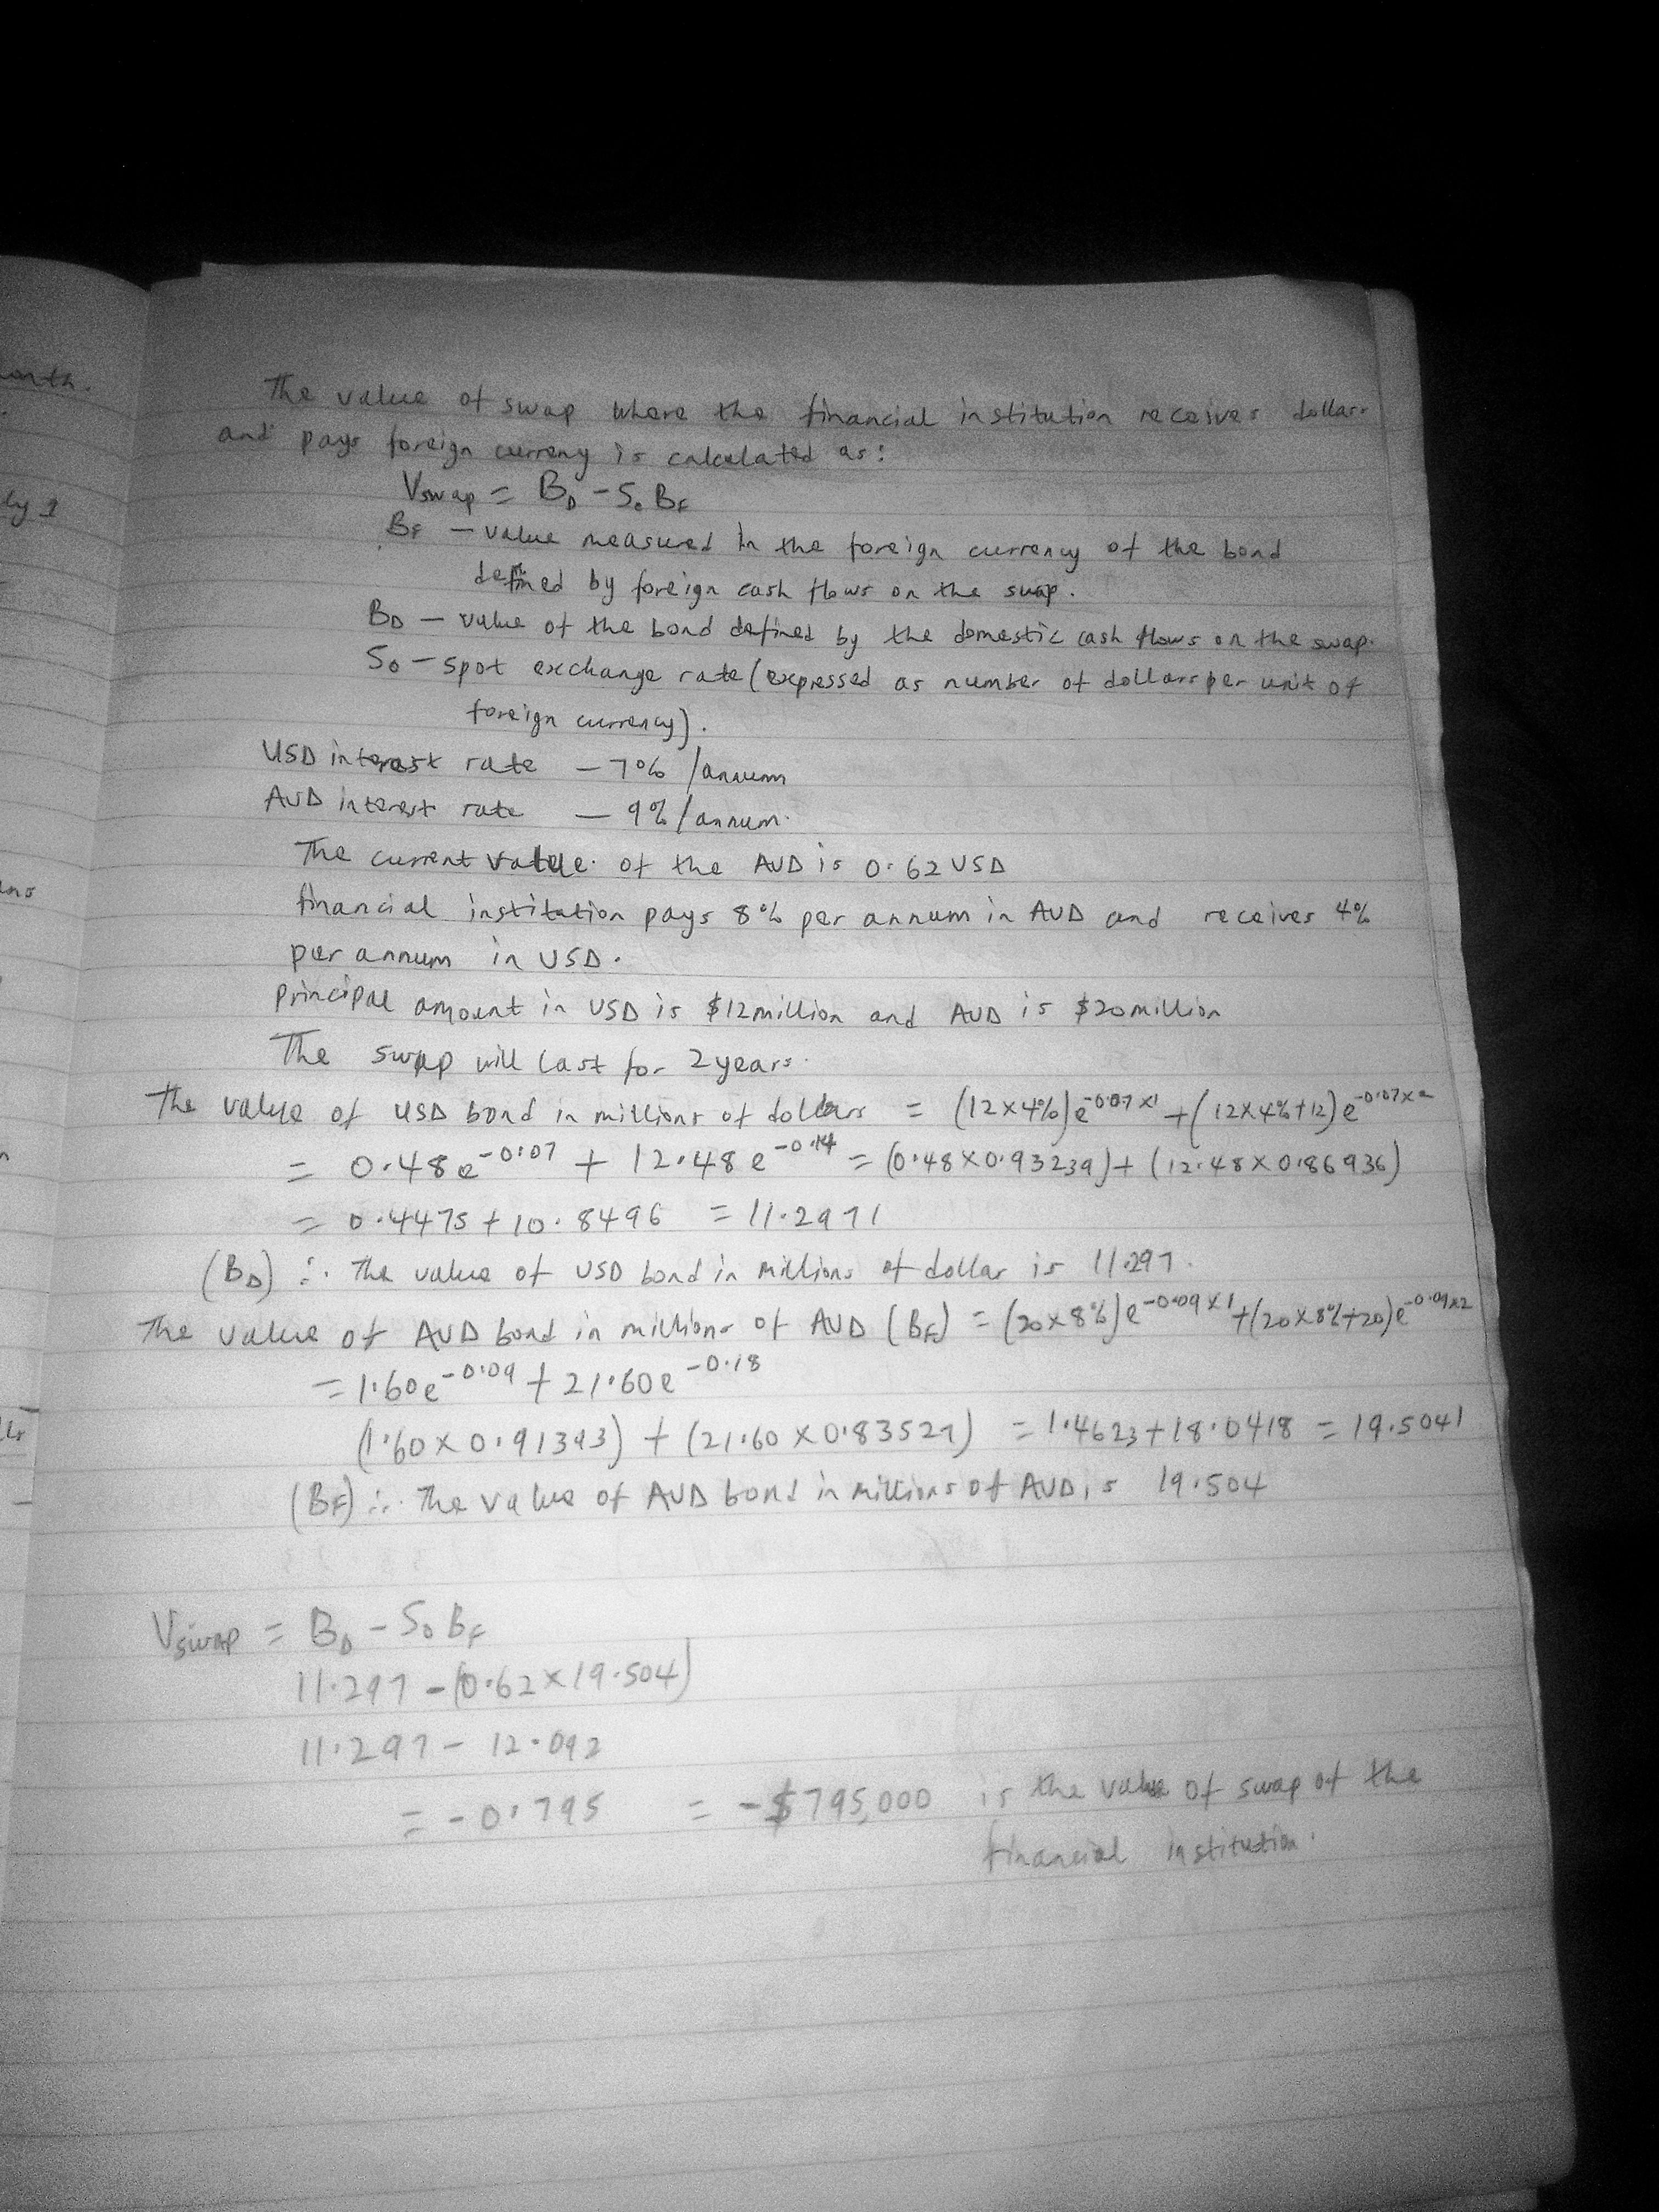 onth.
ly 1
The value of swap where the financial institution receives dollars
and pays foreign curreny is calculated as:
Vswap = B_D - S_o B_F
B_F - value measured in the foreign currency of the bond
defined by foreign cash flows on the swap.
B_D - value of the bond defined by the domestic cash flows on the swap.
S_o - spot exchange rate (expressed as number of dollars per unit of
foreign currency).
USD interest rate - 7% /annum
AUD interest rate - 9% /annum.
The current value of the AUD is 0.62 USD
financial institution pays 8% per annum in AUD and receives 4%
per annum in USD.
principal amount in USD is $12million and AUD is $20million
The swap will last for 2 years.
The value of USD bond in millions of dollars = (12x4%)e^-0.07x1 + (12x4%+12)e^-0.07x2
= 0.48e^-0.07 + 12.48e^-0.14 = (0.48x0.93239) + (12.48x0.86936)
= 0.4475 + 10.8496 = 11.2971
(B_D) ∴ The value of USD bond in millions of dollar is 11.297.
The value of AUD bond in millions of AUD (B_F) = (20x8%)e^-0.09x1 + (20x8%+20)e^-0.09x2
= 1.60e^-0.09 + 21.60e^-0.18
(1.60x0.91393) + (21.60x0.83527) = 1.4623+18.0418 = 19.5041
(B_F) ∴ The value of AUD bond in millions of AUD is 19.504
Vswap = B_D - S_o B_F
11.297 - (0.62x19.504)
11.297 - 12.092
= -0.795 = -$795,000 is the value of swap of the
financial institution.